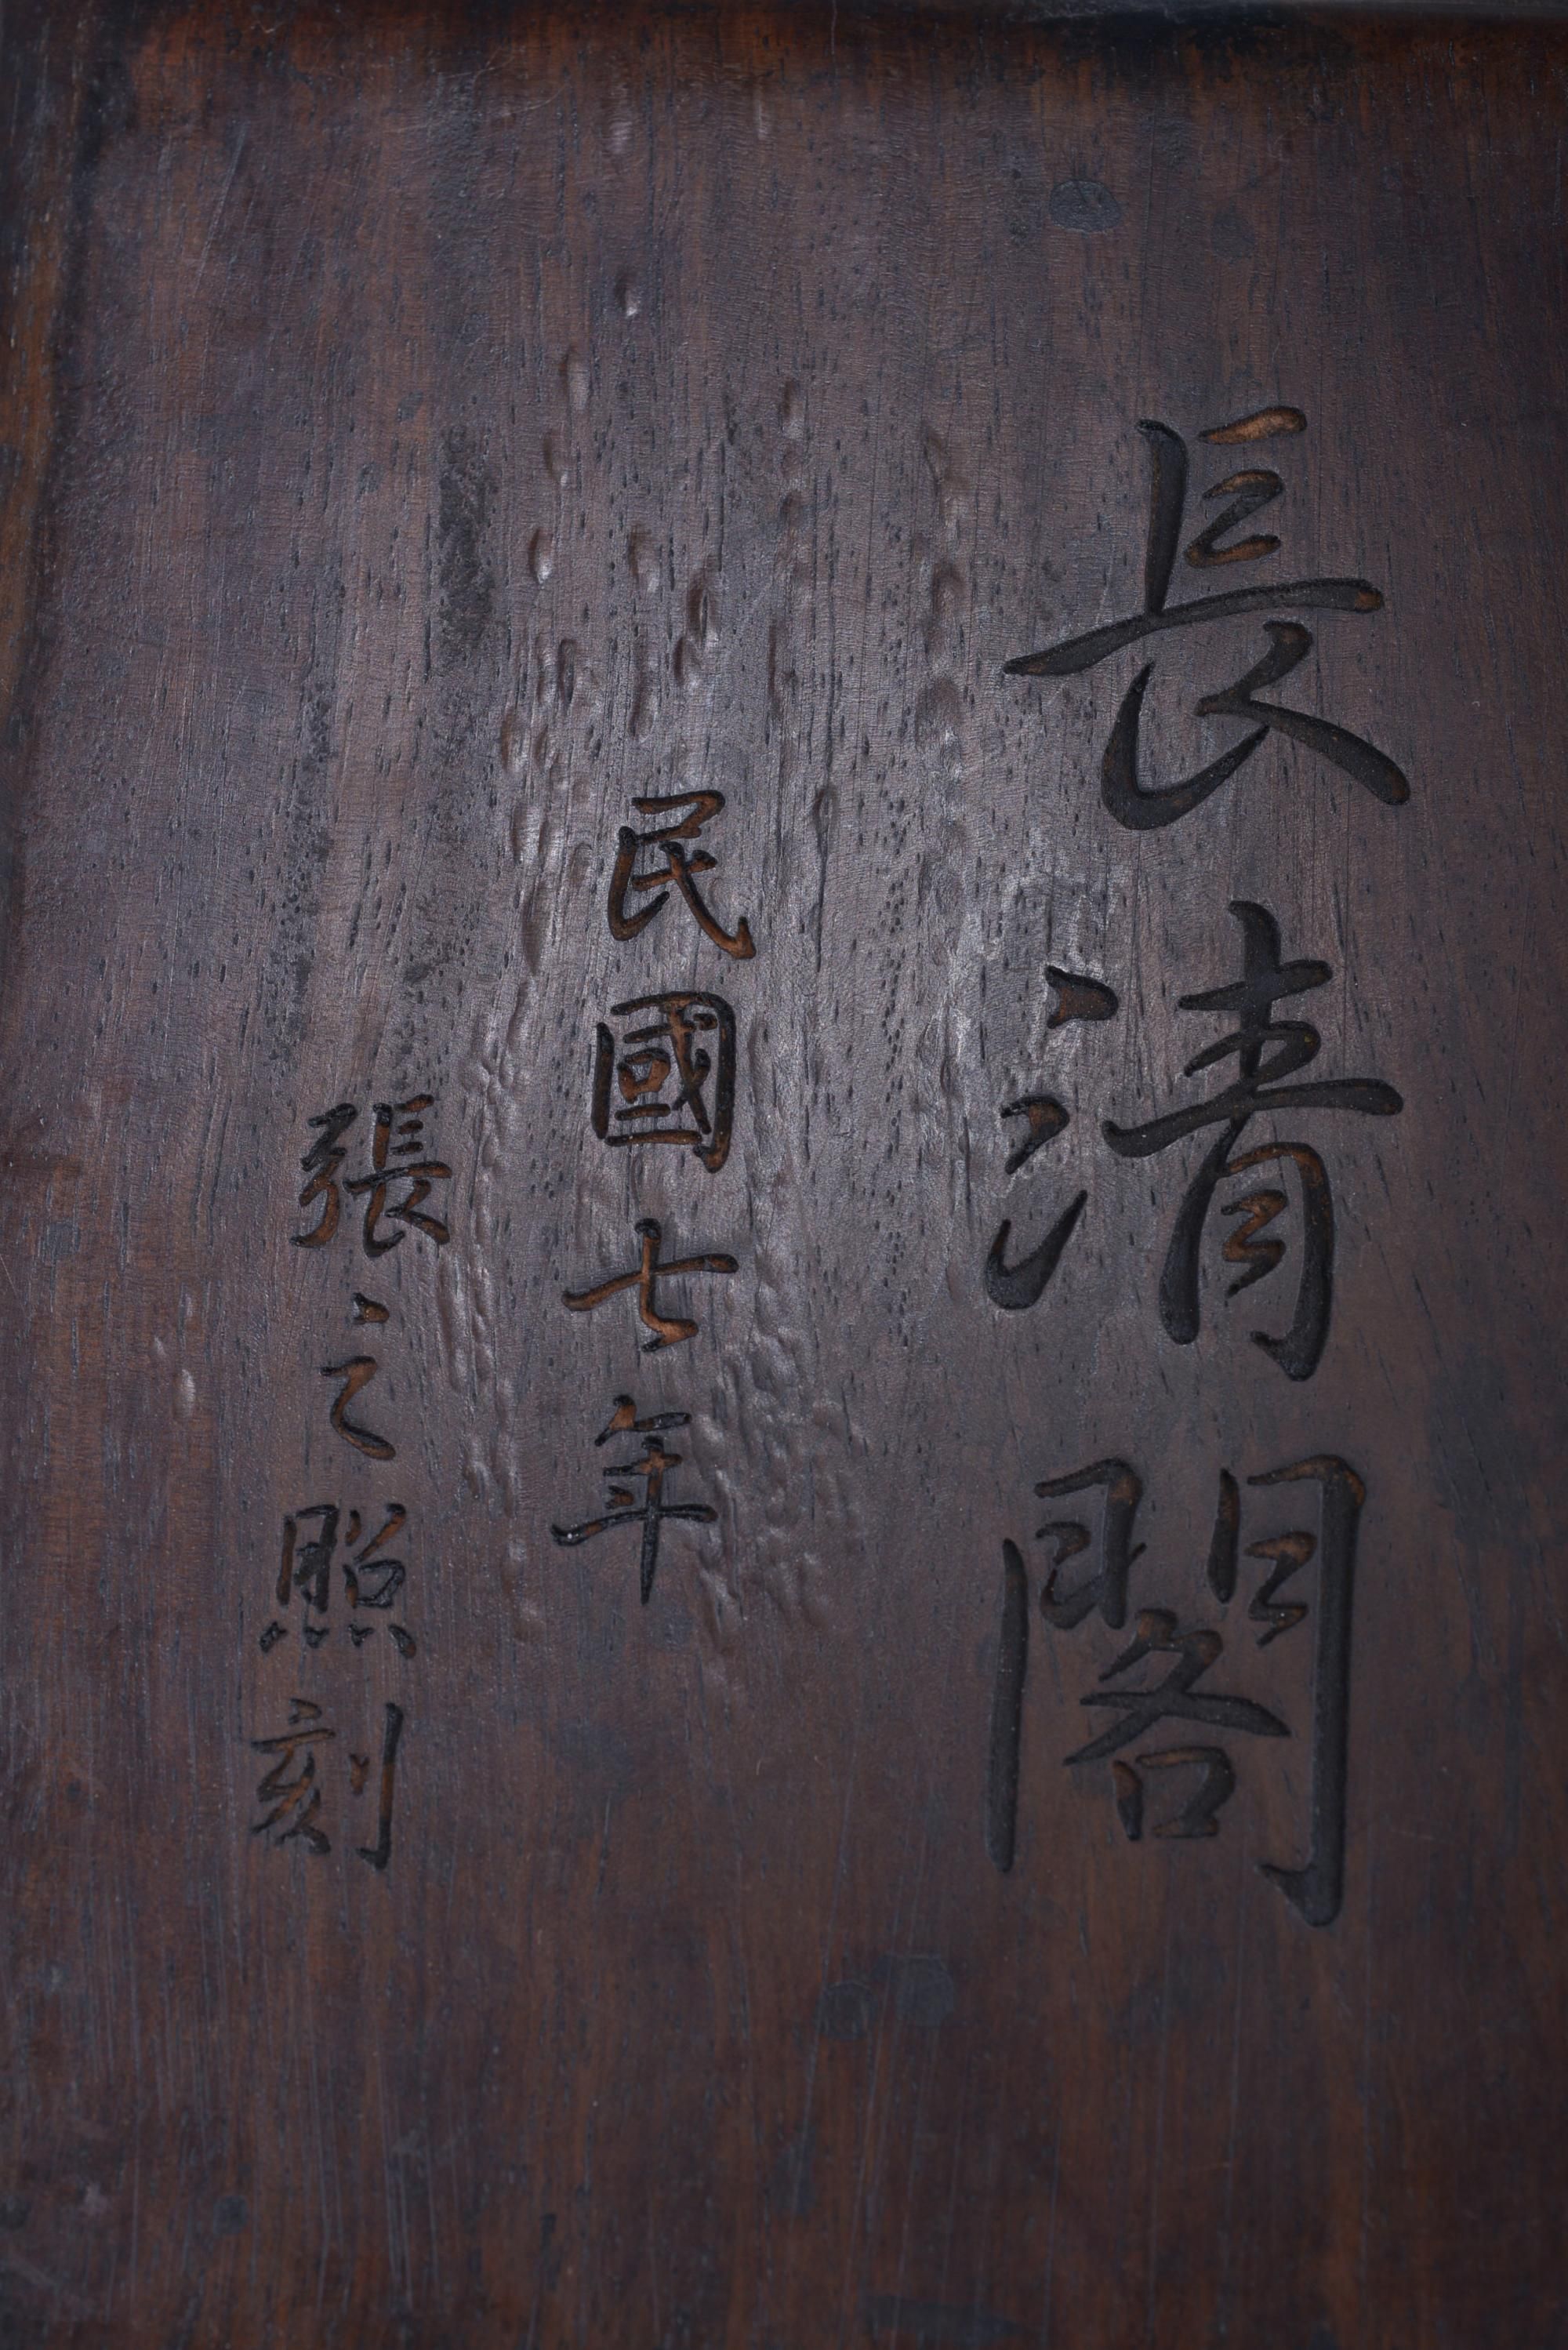 長清閣
民國七年
張之照刻